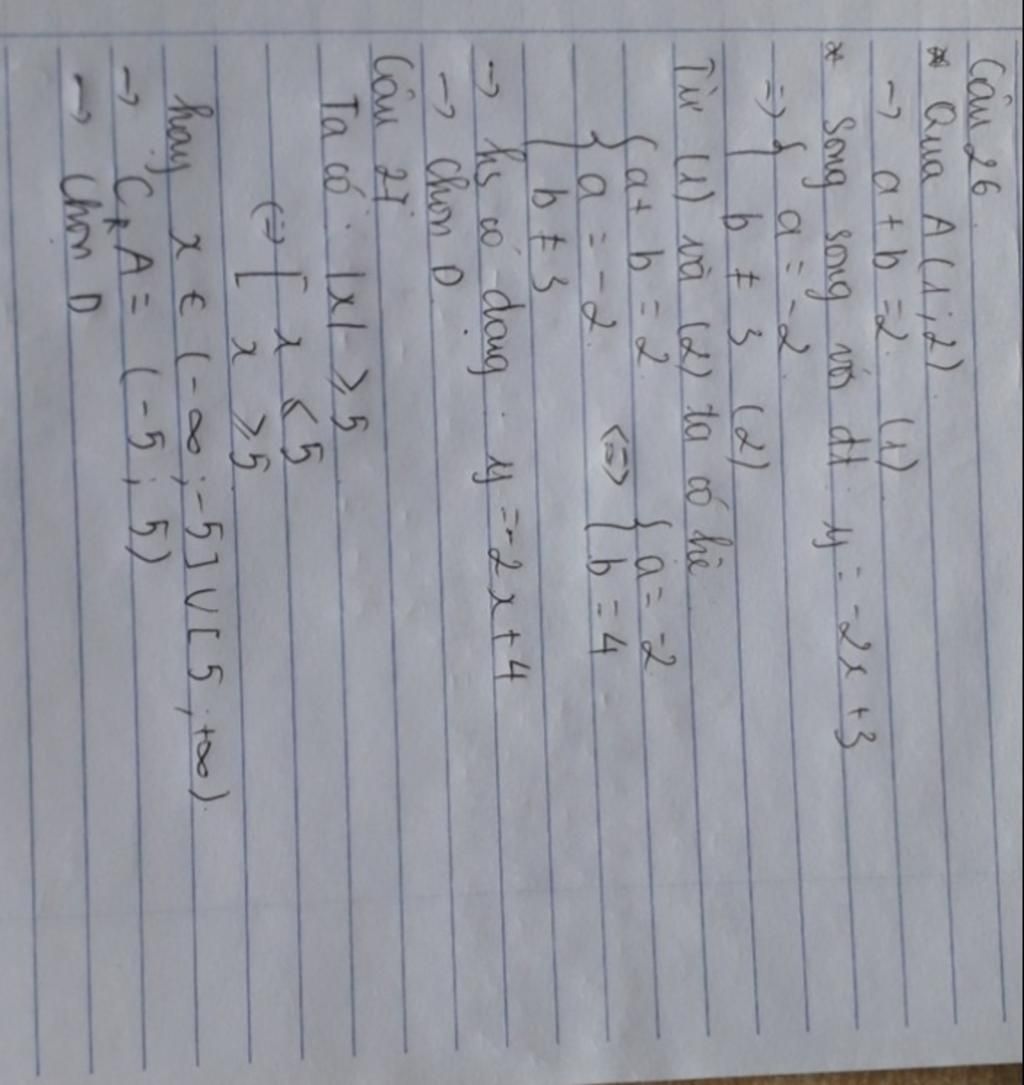 Câu 26
* Qua A(1;2)
→ a + b = 2 (1)
* Song song với đt y = -2x + 3
=> { a = -2
b ≠ 3 (2)
Từ (1) và (2) ta có hệ
{ a + b = 2
{ a = -2 <=> { a = -2
{ b ≠ 3 { b = 4
→ hs có dạng y = -2x + 4
→ Chọn D
Câu 27
Ta có: |x| ≥ 5
<=> [ x ≤ 5
x ≥ 5
hay x ∈ (-∞; -5] ∪ [5; +∞)
→ CRA = (-5; 5)
→ Chọn D